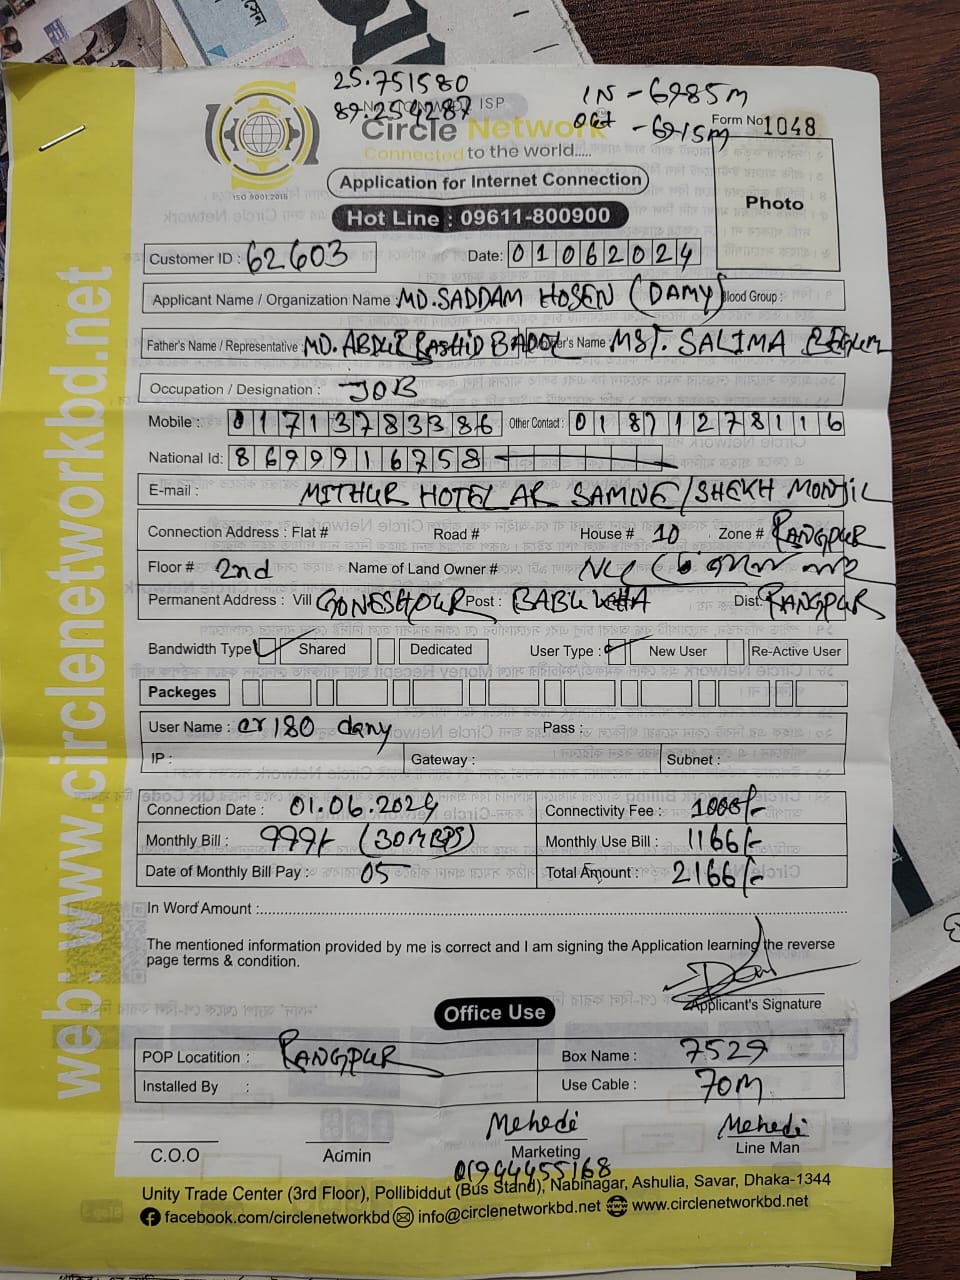 25.751580
89.254287
IN - 6985M
out - 6915M
ISP
Form No 1048
Circle Network
Connected to the world.....
ISO 9001:2015
Application for Internet Connection
Photo
Hot Line : 09611-800900
Customer ID : 62603
Date: 01062024
Applicant Name / Organization Name : MD. SADDAM HOSEN (DAMY) Blood Group :
Father's Name / Representative : MD. ABDUR RASHID BADOL Name : MST. SALIMA BEGUM
Occupation / Designation : JOB
Mobile : 01713783386 Other Contact : 01871278116
National Id: 8699916758
E-mail :
MITHUR HOTEL AR SAMNE/SHEKH MONJIL
Connection Address : Flat # Road # House # 10 Zone # RANGPUR
Floor # 2nd Name of Land Owner #
Permanent Address : Vill GONESHPUR Post : Dist: RANGPUR
Bandwidth Type Shared Dedicated User Type : New User Re-Active User
Packeges
User Name : cr180 dany Pass :
IP : Gateway : Subnet :
Connection Date : 01.06.2024 Connectivity Fee : 1000/-
Monthly Bill : 999/- (30MBPS) Monthly Use Bill : 1166/-
Date of Monthly Bill Pay : 05 Total Amount : 2166/-
In Word Amount :
The mentioned information provided by me is correct and I am signing the Application learning the reverse
page terms & condition.
Applicant's Signature
Office Use
POP Locatition : RANGPUR Box Name : 7529
Installed By : Use Cable : 70M
Mehedi Mehedi
C.O.O Admin Marketing Line Man
01944455168
Unity Trade Center (3rd Floor), Pollibiddut (Bus Stand), Nabinagar, Ashulia, Savar, Dhaka-1344
facebook.com/circlenetworkbd info@circlenetworkbd.net www.circlenetworkbd.net
web: www.circlenetworkbd.net